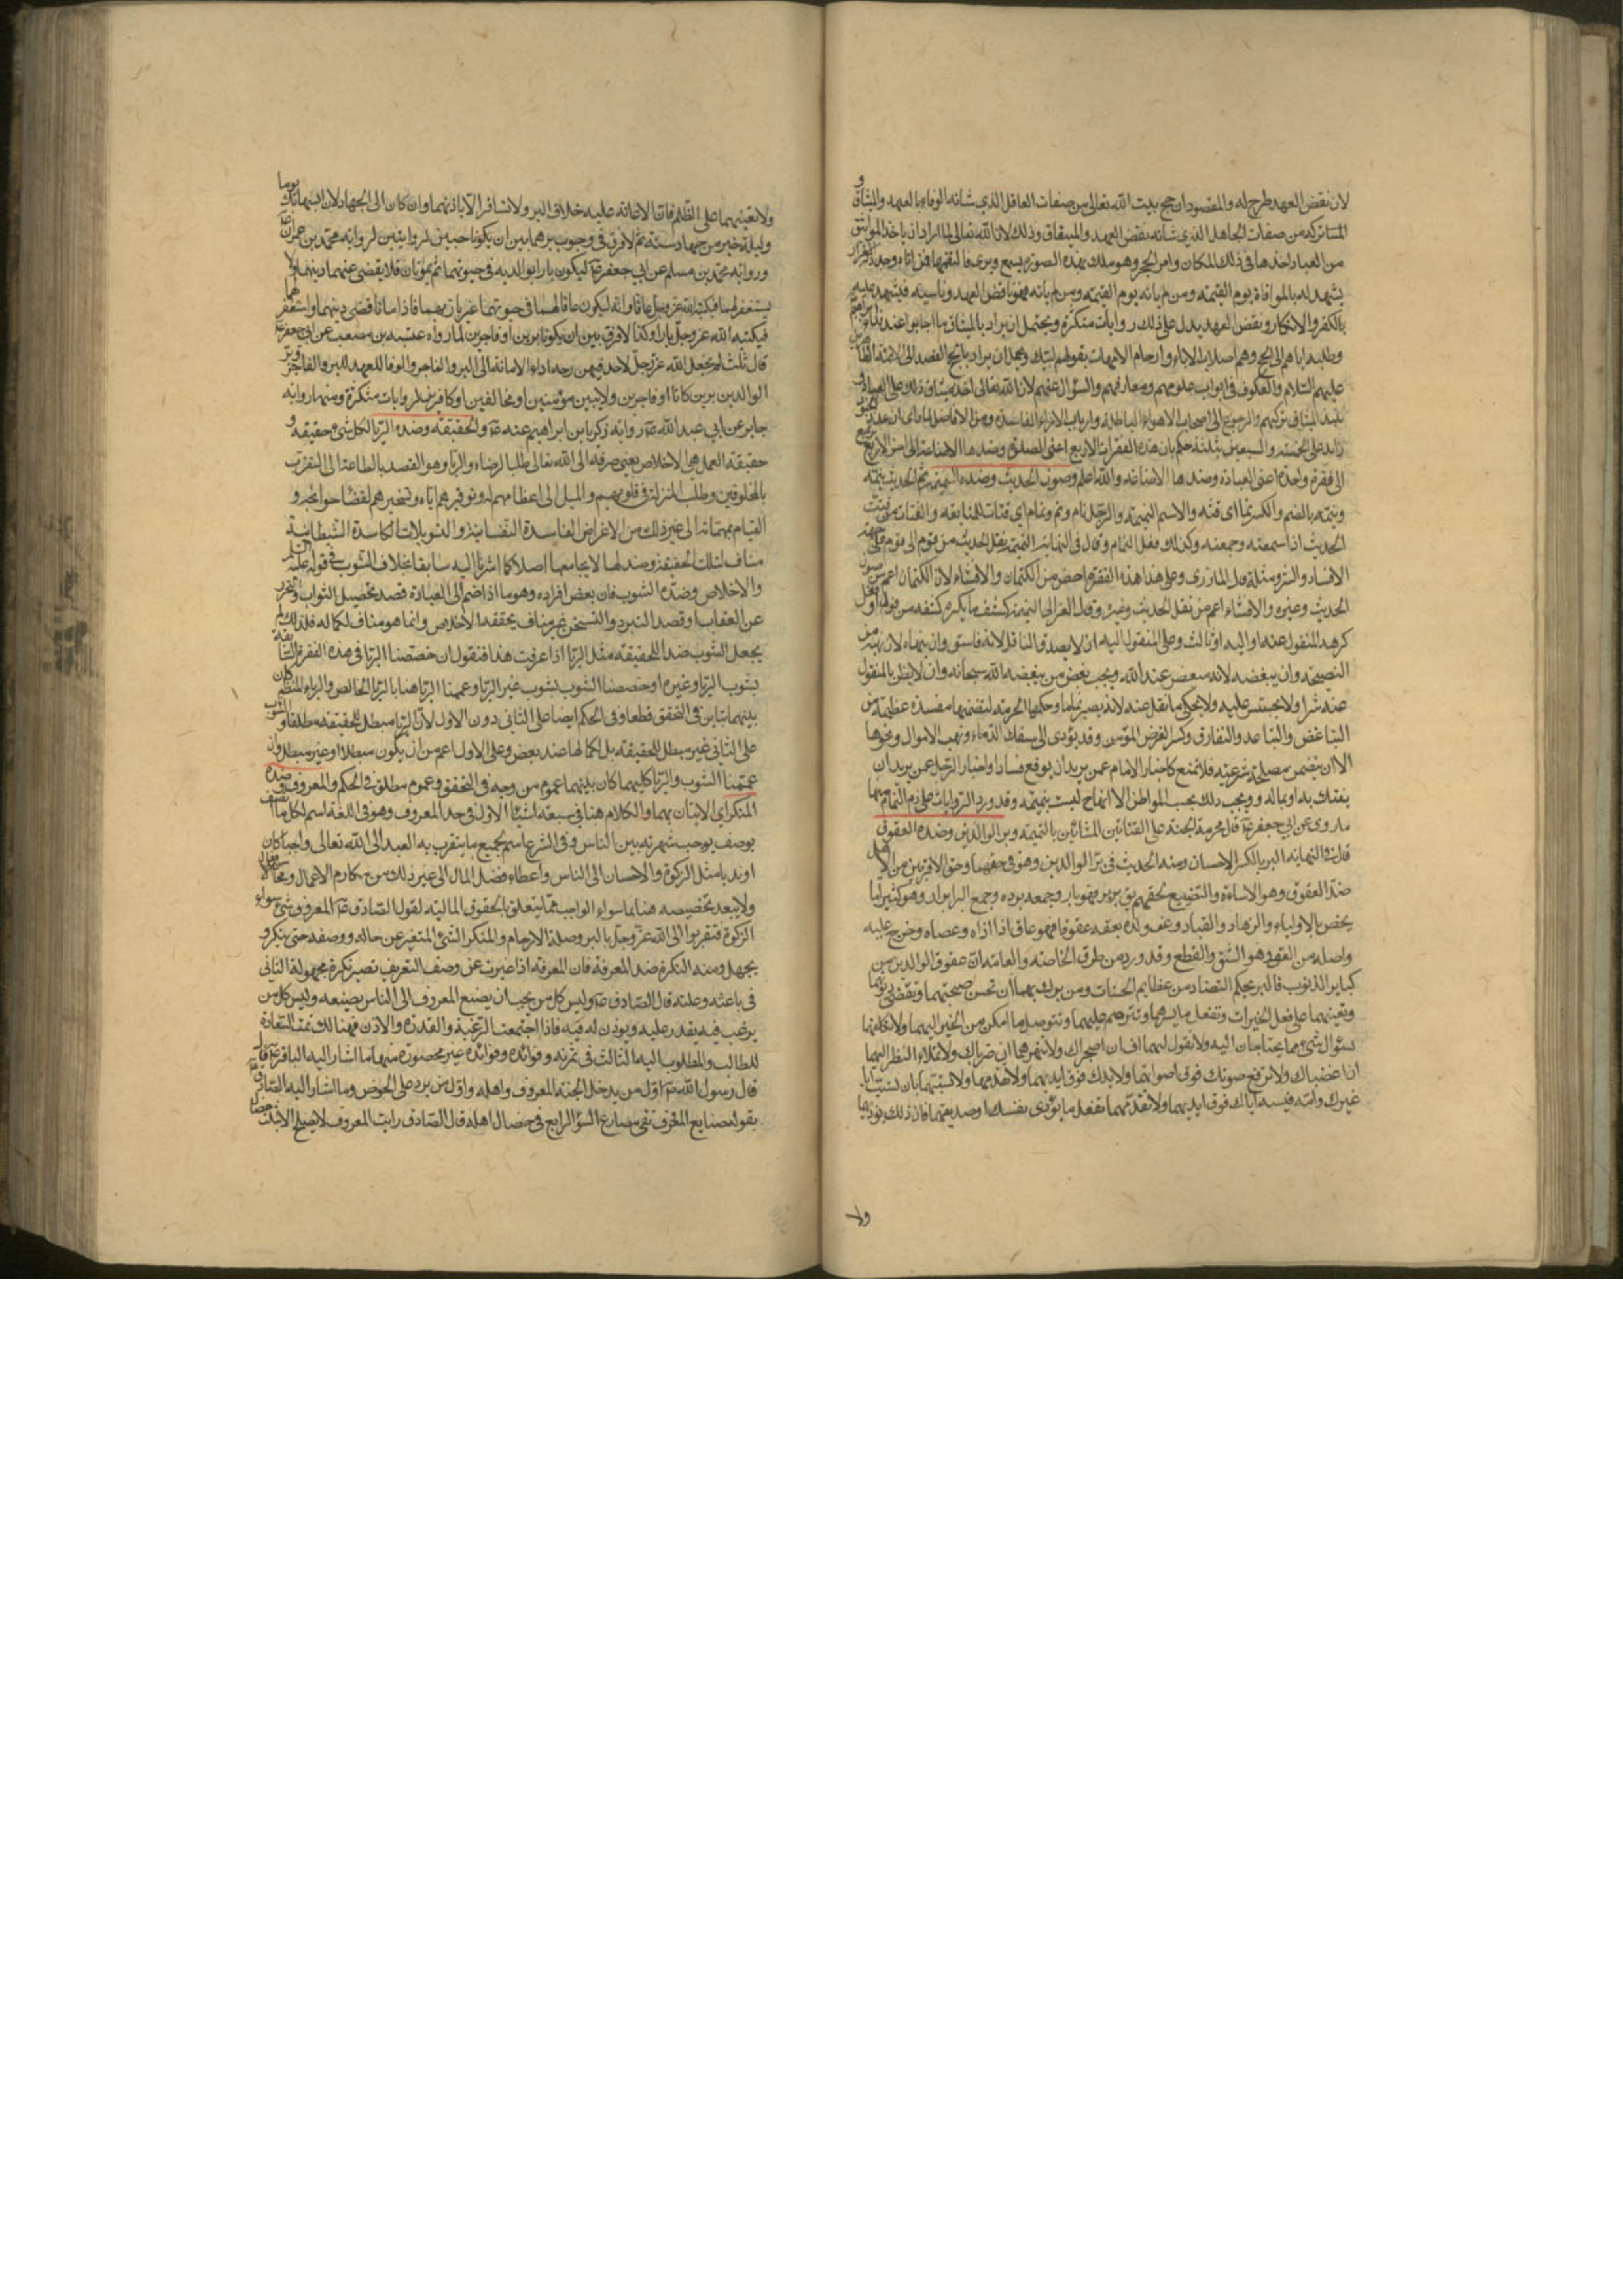 لان نقض العهد طرح له والمقصود ان حج بيت الله تعالى من صفات العاقل الذي شانه الوفاء بالعهد والميثاق و
من صفات الجاهل الذي شانه نقض العهد والميثاق وذلك لان الله تعالى لما اراد ان ياخذ المواثيق
من العباد اخذها في ذلك المكان وامر الحجر وهو ملك بهذه الصورة يسمع ويرى فالتقمها فمن اتاه وجدد الاقرار
يشهد له بالموافاة يوم القيمة ومن لم ياته يوم القيمة ومن لم ياته فهو ناقض العهد وناسيه فيشهد عليه
بالكفر والانكار ونقض العهد يدل على ذلك روايات متكثرة ويحتمل ان يراد بالميثاق ما اجابوا عند نداء ابراهيم
وطلبه اياهم الى الحج وهم اصلاب الاباء وارحام الامهات بقولهم لبيك ويحتمل ان يراد بالحج القصد الى الائمة
عليهم السلام والعكوف في ابواب علومهم ومعارفهم والسؤال عنهم لان الله تعالى اخذ ميثاق ذلك على العباد و
نبذ الميثاق تركهم والرجوع الى اصحاب الاهواء الباطلة وارباب الاراء الفاسدة ومن الافاضل لما راى ان عدد
زايد على الخمسة والسبعين بثلثة حكم بان هذه الفقرات الاربع اعنى الصدق وضدها الاضاعة الى اخر الاربع
الى فقرة واحدة اعنى العبادة وضدها الاضاعة والله اعلم وصون الحديث وضده النميمة نم الحديث ينمه
وينمه بالضم والكسر نما اى قته والاسم النميمة والرجل نام ونم ونمام اى قتات للمبالغة والقتات من قتت
الحديث اذا سمعته وجمعته وكذلك فعل النمام وقال في النهاية النميمة نقل الحديث من قوم الى قوم على جهة
الافساد والشر ومثله قال المازرى وعلى هذا هذه الفقرة اخص من الكتمان والافشاء لان الكتمان اعم من صون
الحديث وغيره والافشاء اعم من نقل الحديث وغيره وقال الغزالى النميمة كشف ما يكره كشفه من قول او فعل
كرهه المنقول عنه او اليه او ثالث وعلى المنقول اليه ان لا يصدق الناقل لانه فاسق وان ينهاه لان نهيه من
النصيحة وان يبغضه لانه مبغض عند الله ويجب بغض من يبغضه الله سبحانه وان لا يظن بالمنقول
عنه شرا ولا يتجسس عليه ولا يحكى ما نقل عنه لانه يصير نماما وحكمها الحرمة لتضمنها مفسدة عظيمة من
التباغض والتباعد والتفارق وكسر لغرض المؤمن وقد يؤدى الى سفك الدماء ونهب الاموال ونحوها
الا ان يتضمن مصلحة شرعية فلا تمنع كاخبار الامام عمن يريد ان يوقع فسادا واخبار الرجل عمن يريد ان
يفتك به او بماله ويجب ذلك بحسب المواطن ليست بنميمة وقد ورد الروايات على ذم النمام منها
ما روى عن ابي جعفر ع قال محرمة الجنة على القتاتين المشائين بالنميمة وبر الوالدين وضده العقوق
قال في النهاية البر بالكسر الاحسان ومنه الحديث في بر الوالدين وهو في حقهما وحق الاقربين من الاهل
ضد العقوق وهو الاساءة والتضييع لحقهم يق بر يبر فهو بار وجمعه بررة وجمع البر ابرار وهو كثيرا ما
يخص بالاولياء والزهاد والعباد وعق والده يعقه عقوقا فهو عاق اذا اذاه وعصاه وخرج عليه
واصله من العق وهو الشق والقطع وقد ورد من طرق الخاصة والعامة ان عقوق الوالدين من
كباير الذنوب فالبر بحكم التضاد من عظايم الحسنات ومن برك بهما ان تحسن صحبتهما وتقضى ديونهما
وتعينهما على فعل الخيرات وتفعل ما يسرهما وتترحم عليهما وتتوصل ما امكن من الخير اليهما ولا تكلفهما
سؤال شئ مما يحتاجان اليه ولا تقول لهما اف ان اضجراك ولا تنهرهما ان ضرباك ولا تملاء النظر اليهما
ان اغضباك ولا ترفع صوتك فوق اصواتهما ولا يدك فوق ايديهما ولا تقدمهما ولا تسبهما بان تسب ابا
غيرك وامه فيسب اباك ولا تفعل ما يؤذى نفسك او صديقهما فان ذلك يؤذيهما
ولا
ولا تعينهما على الظلم فان الاعانة عليه خلاف البر ولا تسافر الا باذنهما وان كان الى الجهاد لان انسهما بك يوما
وليلة خير من جهاد سنة ثم لا فرق في وجوب برهما بين ان يكونا حيين او ميتين لرواية محمد بن عمران
ورواية محمد بن مسلم عن ابي جعفر ع ليكون بارا بوالديه في حيوتهما ثم يموتان فلا يقضى عنهما دينهما ولا
يستغفر لهما فيكتبه الله عز وجل عاقا وانه ليكون عاقا لهما في حيوتهما غير بار بهما فاذا ماتا قضى دينهما واستغفر لهما
فيكتبه الله عز وجل بارا وكذا لا فرق بين ان يكونا برين او فاجرين لما رواه عنبسة بن مصعب عن ابي جعفر ع
قال ثلث لم يجعل الله عز وجل لاحد فيهن رخصة اداء الامانة الى البر والفاجر والوفا بالعهد للبر والفاجر وبر
الوالدين برين كانا او فاجرين ولا بين مؤمنين او مخالفين او كافرين لروايات متكثرة ومنها رواية
جابر عن ابي عبد الله ع ورواية زكريا بن ابراهيم عنه ع والحقيقة وضده الريا لكل شئ حقيقة و
حقيقة العمل هى الاخلاص يعنى صرفه الى الله تعالى طلبا لرضاه والريا وهو القصد بالطاعة الى التقرب
بالمخلوقين وطلب المنزلة في قلوبهم والميل الى اعظامهم له وتوقيرهم اياه وتسخيرهم لقضاء حوائجه و
القيام بمهماته الى غير ذلك من الاغراض الفاسدة النفسانية والتسويلات الكاسدة الشيطانية
مناف لتلك الحقيقة وضد لها لا يجامعها اصلا كما اشرنا اليه سابقا بخلاف الشوب في قوله
والاخلاص وضده الشوب فان بعض افراده وهو ما اذا ضم الى العبادة قصد تحصيل الثواب والتحرز
عن العقاب او قصد التبرد والتسخن غير مناف لحقيقة الاخلاص وانما هو مناف لكماله فلذلك لم
يجعل الشوب ضد الحقيقة مثل الريا اذا عرفت هذا فنقول ان خصصنا الريا في هذه الفقرة
بشوب الريا وغيره او خصصنا الشوب بشوب غير الريا وعممنا الريا هنا بالريا الخالص والرياء المنضم كان
بينهما تباين في التحقق قطعا وفي الحكم ايضا على الثاني دون الاول لان الريا مبطل للحقيقة مطلقا والشوب
على الثاني غير مبطل للحقيقة بل لكمالها عند بعض وعلى الاول اعم من ان يكون مبطلا او غير مبطل وان
عممنا الشوب والريا كليهما كان بينهما عموم من وجه في التحقق وعموم مطلق في الحكم والمعروف وضده
المنكر اى الاتيان بهما والكلام هنا في سبعة اشياء الاول في حد المعروف وهو في اللغة اسم لكل ما
يوصف بوجب شهرته بين الناس وفي الشرع اسم لجميع ما يتقرب به العبد الى الله تعالى واجبا كان
او ندبا مثل الزكوة والاحسان الى الناس واعطاء فضل المال الى غير ذلك من مكارم الاعمال
ولا يبعد تخصيصه هنا بما سواء الواجب مما يتعلق بالحقوق المالية لقول الصادق ع المعروف شئ سواء
الزكوة فتقربوا الى الله عز وجل بالبر وصلة الارحام والمنكر الشئ المتغير عن حاله ووصفه حتى ينكر و
يجهل ومنه النكرة ضد المعرفة فان المعرفة اذا غيرت عن وصف التعريف تصير نكرة مجهولة الثاني
في باعثه وعلته قال الصادق ع وليس كل من يحب ان يصنع المعروف الى الناس يصنعه وليس كل من
يرغب فيه يقدر عليه ويوذن له فيه فاذا اجتمعت الرغبة والقدرة والاذن فهنالك تمت السعادة
للطالب والمطلوب اليه الثالث في ثمرته وفوائده وفوائده غير محصورة منها ما اشار اليه الباقر ع قال
قال رسول الله ص اول من يدخل الجنة المعروف واهله واول من يرد على الحوض وما اشار اليه الصادق ع
بقوله صنايع المعروف تقى مصارع السؤ الرابع في خصال اهله قال الصادق رايت المعروف لا يصلح الا بثلث خصال